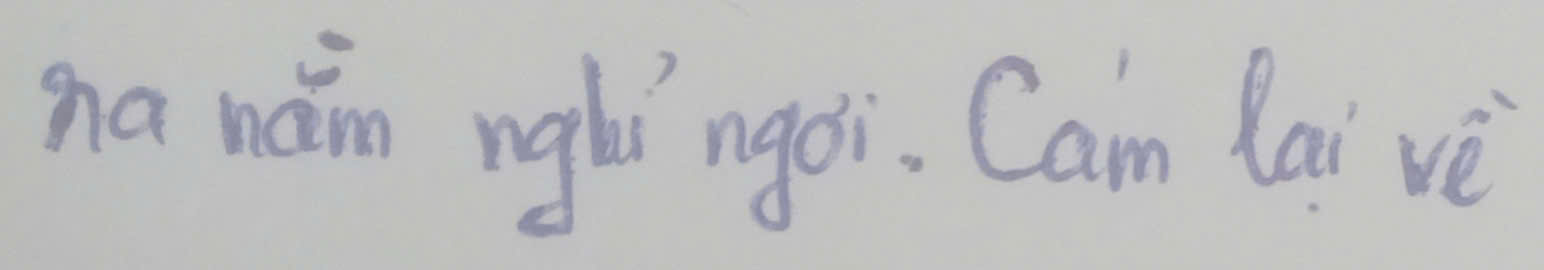 ra nằm nghỉ ngơi. Cám lại về